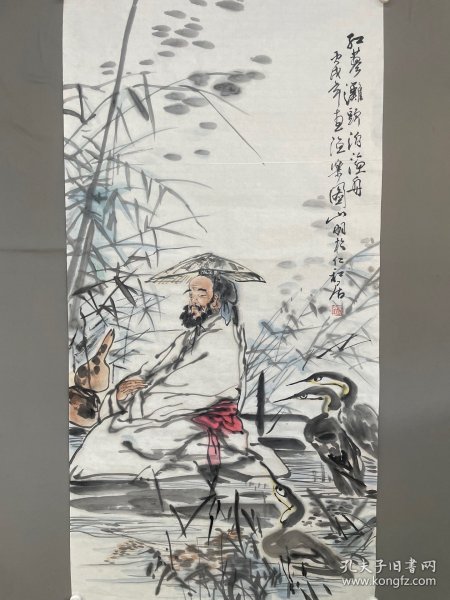 红蓼滩头泊渔舟
丙戌年画渔乐图山明於仁和居
孔夫子旧书网
www.kongfz.com